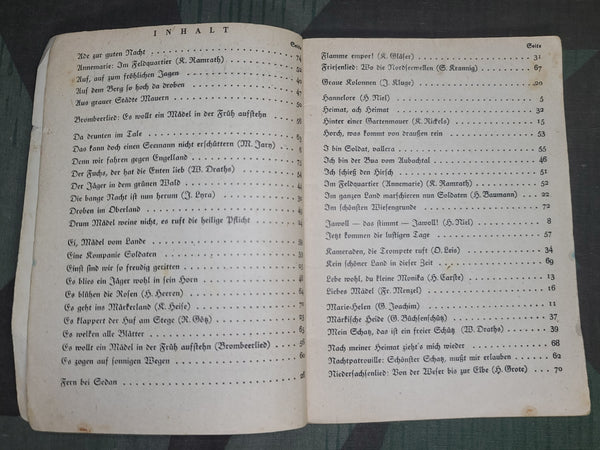 INHALT
Seite
Ade zur guten Nacht 74
Annemarie: Im Feldquartier (K. Ramrath) 52
Auf, auf zum fröhlichen Jagen
Auf dem Berg so hoch da droben
Aus grauer Städte Mauern
Brombeerlied: Es wollt ein Mädel in der Früh aufstehn 56
Da drunten im Tale
Das kann doch einen Seemann nicht erschüttern (M. Jary)
Denn wir fahren gegen Engelland
Der Fuchs, der hat die Enten lieb (W. Draths)
Der Jäger in dem grünen Wald
Die bange Nacht ist nun herum (J. Lyra)
Droben im Oberland
Drum Mädel weine nicht, es ruft die heilige Pflicht
Ei, Mädel vom Lande
Eine Kompanie Soldaten
Einst sind wir so freudig geritten
Es blies ein Jäger wohl in sein Horn
Es blühen die Rosen (H. Herren)
Es geht ins Märkerland (K. Heise)
Es klappert der Huf am Stege (R. Götz)
Es welken alle Blätter
Es wollt ein Mädel in der Früh aufstehn (Brombeerlied) 56
Es zogen auf sonnigen Wegen
Fern bei Sedan
Seite
Flamme empor! (K. Gläser) 31
Friesenlied: Wo die Nordseewellen (S. Krannig) 67
Graue Kolonnen (J. Kluge) 20
Hannelore (H. Niel) 5
Heimat, ach Heimat 3
Hinter einer Gartenmauer (K. Rickels) 15
Horch, was kommt von draußen rein 53
I bin Soldat, vallera 55
Ich bin der Bua vom Aubachtal 46
Ich schieß den Hirsch 51
Im Feldquartier (Annemarie) (K. Ramrath) 52
Im ganzen Land marschieren nun Soldaten (H. Baumann) 22
Im schönsten Wiesengrunde 72
Jawoll — das stimmt — Jawoll! (H. Niel) 8
Jetzt kommen die lustigen Tage 57
Kameraden, die Trompete ruft (O. Leis) 34
Kein schöner Land in dieser Zeit 69
Lebe wohl, du kleine Monika (H. Carste) 13
Liebes Mädel (Fr. Menzel) 16
Marie-Helen (G. Joachim) 11
Märkische Heide (G. Büchsenschütz) 37
Mein Schatz, das ist ein freier Schütz (W. Draths) 39
Nach meiner Heimat zieht's mich wieder 68
Nachtpatrouille: Schönster Schatz, mußt mir erlauben 62
Niedersachsenlied: Von der Weser bis zur Elbe (H. Grote) 70